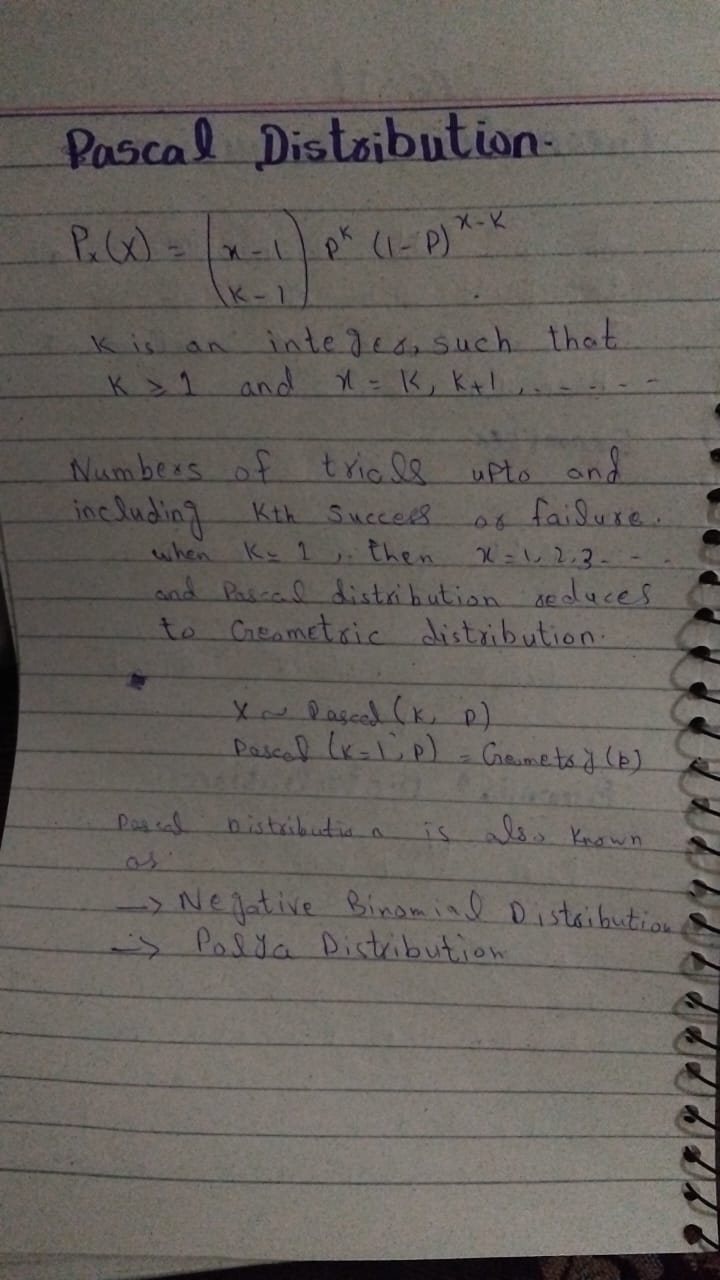 Pascal Distribution.
Pₓ(x) = (x-1
K-1) p^K (1-P)^x-K
K is an integer, such that
K ≥ 1 and x = K, K+1, - - - - -
Numbers of trials upto and
including Kth Success or failure.
when K= 1, then x = 1, 2, 3- - -
and Pascal distribution reduces
to Geometric distribution.
X ~ Pascal (K, P)
Pascal (K=1, P) = (P)
Pascal Distribution is also known
as
→ Negative Binomial Distribution
→ Polya Distribution